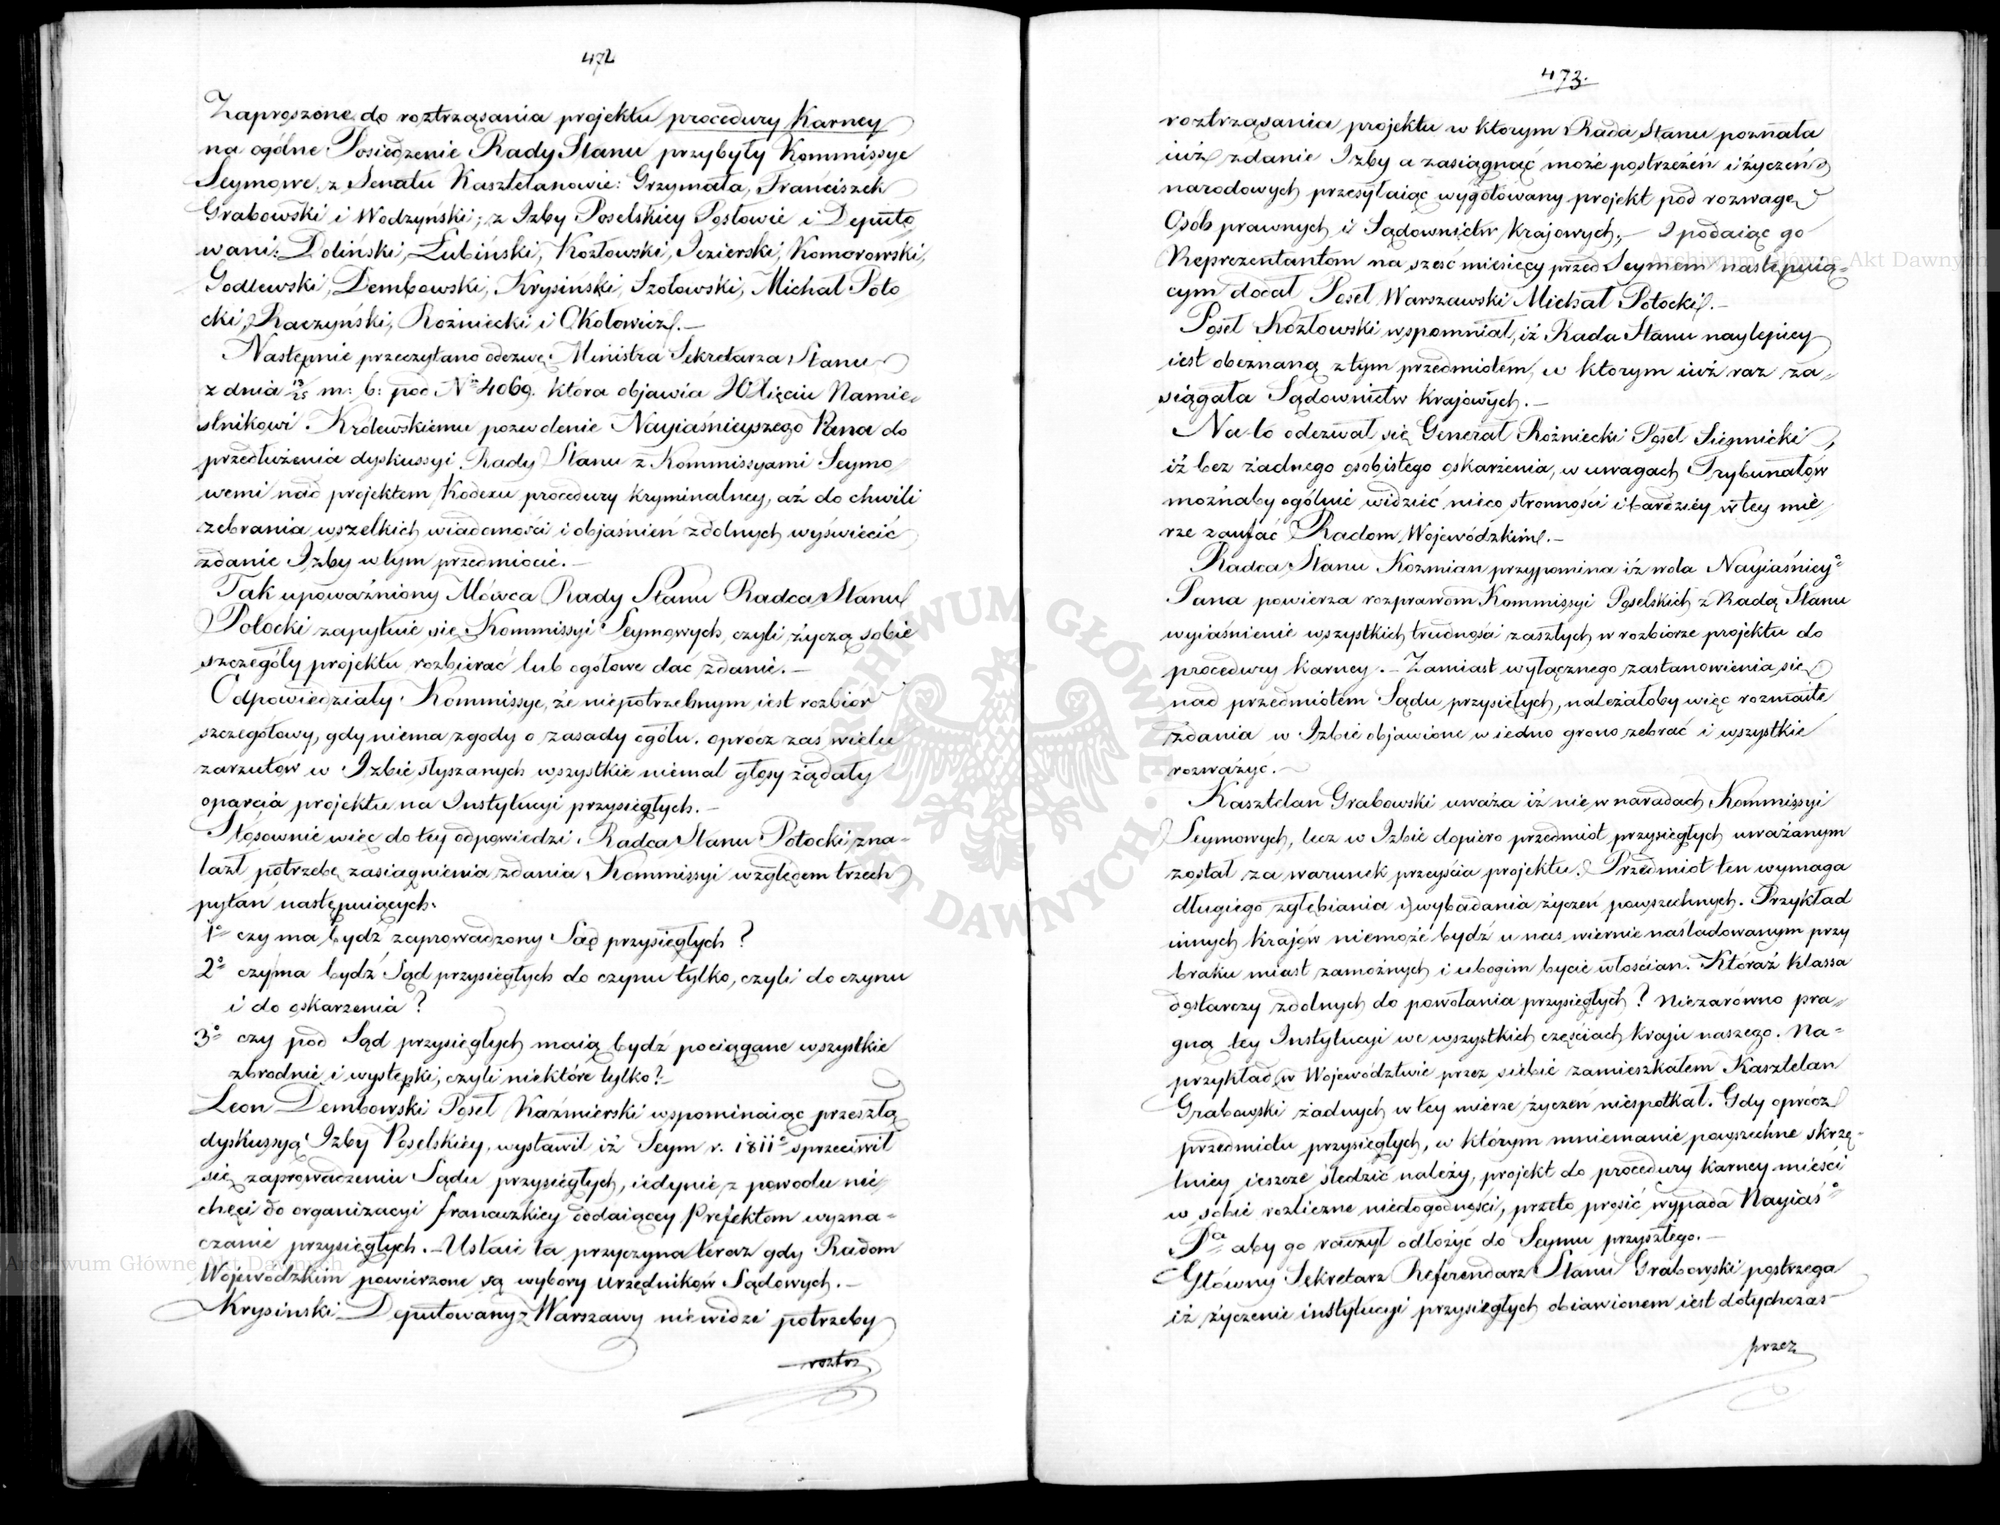 472
Zaproszone do roztrząsania projektu procedury Karney
na ogólne Posiedzenie Rady Stanu przybyły Kommissye
Seymowe, z Senatu Kasztelanowie: Grzymała, Franciszek
Grabowski i Wodzyński; z Izby Poselskiey Posłowie i Deputo
wani: Doliński, Łubiński, Kozłowski, Jezierski, Komorowski,
Godlewski, Dembowski, Krysiński, Szołowski, Michał Poto
cki, Raczyński, Rożniecki i Okołowicz.—
Następnie przeczytano odezwę Ministra Sekretarza Stanu
z dnia 13/25 m: b: pod No 4069. która objawia JOXięciu Namie-
stnikowi Królewskiemu pozwolenie Nayiaśnieyszego Pana do
przedłużenia dyskussyi Rady Stanu z Kommissyami Seymo
wemi nad projektem Kodexu procedury kryminalney, aż do chwili
zebrania wszelkich wiadomości i objaśnień zdolnych wyświecić
zdanie Izby w tym przedmiocie.—
Tak upoważniony Mówca Rady Stanu Radca Stanu
Potocki zapytuie się Kommissyi Seymowych, czyli życzą sobie
szczegóły projektu rozbierać lub ogółowe dać zdanie.—
Odpowiedziały Kommissye, że niepotrzebnym iest rozbiór
szczegółowy, gdy niema zgody o zasady ogółu. oprócz zaś wielu
zarzutów w Izbie słyszanych wszystkie niemal głosy żądały
oparcia projektu na Instytucyi przysięgłych.—
Stósownie więc do tey odpowiedzi Radca Stanu Potocki zna-
lazł potrzebę zasiągnienia zdania Kommissyi względem trzech
pytań następuiących.
1o czy ma bydź zaprowadzony Sąd przysięgłych?
2o czy ma bydź Sąd przysięgłych do czynu tylko, czyli do czynu
i do oskarzenia?
3o czy pod Sąd przysięgłych maią bydź pociągane wszystkie
zbrodnie i występki, czyli niektóre tylko?—
Leon Dembowski Poseł Kaźmierski wspominaiąc przeszłą
dyskussyą Izby Poselskiey, wystawił iż Seym r. 1811o sprzeciwił
się zaprowadzeniu Sądu przysięgłych, iedynie z powodu nie
chęci do organizacyi francuzkiey oddaiącey Prefektom wyzna-
czanie przysięgłych.—Ustaie ta przyczyna teraz gdy Radom
Wojewódzkim powierzone są wybory Urzędników Sądowych.—
Krysiński Deputowany z Warszawy niewidzi potrzeby
roztrz
473.
roztrząsania projektu w którym Rada Stanu poznała
iuż zdanie Izby a zasiągnąć może postrzeżeń i życzeń
narodowych przesyłaiąc wygotowany projekt pod rozwagę
Osób prawnych i Sądownictw krajowych.— I podaiąc go
Reprezentantom na sześć miesięcy przed Seymem następuią-
cym dodał Poseł Warszawski Michał Potocki.—
Poseł Kozłowski wspomniał, iż Rada Stanu naylepiey
iest obeznaną z tym przedmiotem, w którym iuż raz za-
siągała Sądownictw krajowych.—
Na to odezwał się Generał Rożniecki Poseł Siennicki,
iż bez żadnego osobistego oskarżenia, w uwagach Trybunałów
możnaby ogólnie widzieć nieco stronności i bardziey w tey mie
rze zaufać Radom Wojewódzkim.—
Radca Stanu Koźmian przypomina iż wola Nayiaśniey:o
Pana powierza rozprawom Kommissyi Poselskich z Radą Stanu
wyiaśnienie wszystkich trudności zaszłych w rozbiorze projektu do
procedury karney.—Zamiast wyłącznego zastanowienia się
nad przedmiotem Sądu przysięłych, należałoby więc rozmaite
zdania w Izbie objawione w iedno grono zebrać i wszystkie
rozważyć.—
Kasztelan Grabowski uważa iż nie w naradach Kommissyi
Seymowych, lecz w Izbie dopiero przedmiot przysięgłych uważanym
został za warunek przeyścia projektu. Przedmiot ten wymaga
długiego zgłębiania i wybadania życzeń powszechnych. Przykład
innych krajów niemoże bydź u nas wiernie naśladowanym przy
braku miast zamożnych i ubogim bycie włościan. Któraż klassa
dostarczy zdolnych do powołania przysięgłych? Niezarówno pra-
gną tey Instytucyi we wszystkich częściach kraju naszego. Na-
przykład w Województwie przez siebie zamieszkałem Kasztelan
Grabowski żadnych w tey mierze życzeń niespotkał. Gdy oprócz
przedmiotu przysięgłych, w którym mniemanie powszechne skrzę-
tniey ieszcze śledzić należy, projekt do procedury karney mieści
w sobie rozliczne niedogodności, przeto prosić wypada Nayiaś:o
Pa aby go raczył odłożyć do Seymu przyszłego.—
Główny Sekretarz Referendarz Stanu Grabowski postrzega
iż życzenie instytucyi przysięgłych obiawionem iest dotychczas
przez